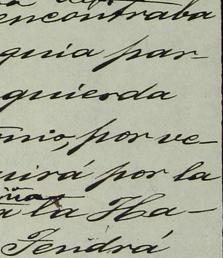 encontraba
quia par-
quierda
nio, por ve-
uirá por la
a la Ha-
Tendrá